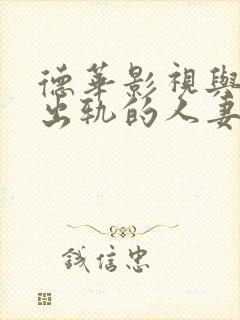 德華影視與
出軌的人妻
钱信忠